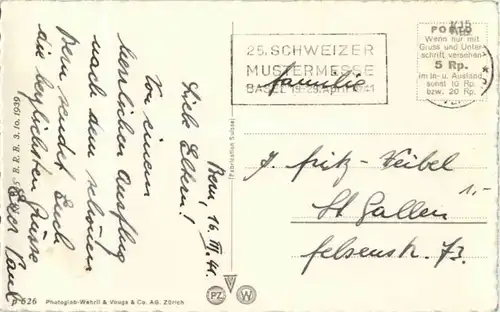 Bern, 16. III. 41.
Liebe Eltern!
Von einem
herrlichen Ausflug
nach dem schönen
Bern sendet Euch
die herzlichsten Grüsse
Euer Paul
S. B. R. B. 3.10.1939
P 626 Photoglob-Wehrli & Vouga & Co. AG. Zürich
Fabrication Suisse
25. SCHWEIZER
MUSTERMESSE
BASEL 19-29. April 1941
POSTO
Wenn nur mit
Gruss und Unter-
schrift versehen
5 Rp.
im In- u. Ausland,
sonst 10 Rp.
bzw. 20 Rp.
Familie
J. Fritz-Keibel
St Gallen
Felsenstr. 73.
1.-
PZ W